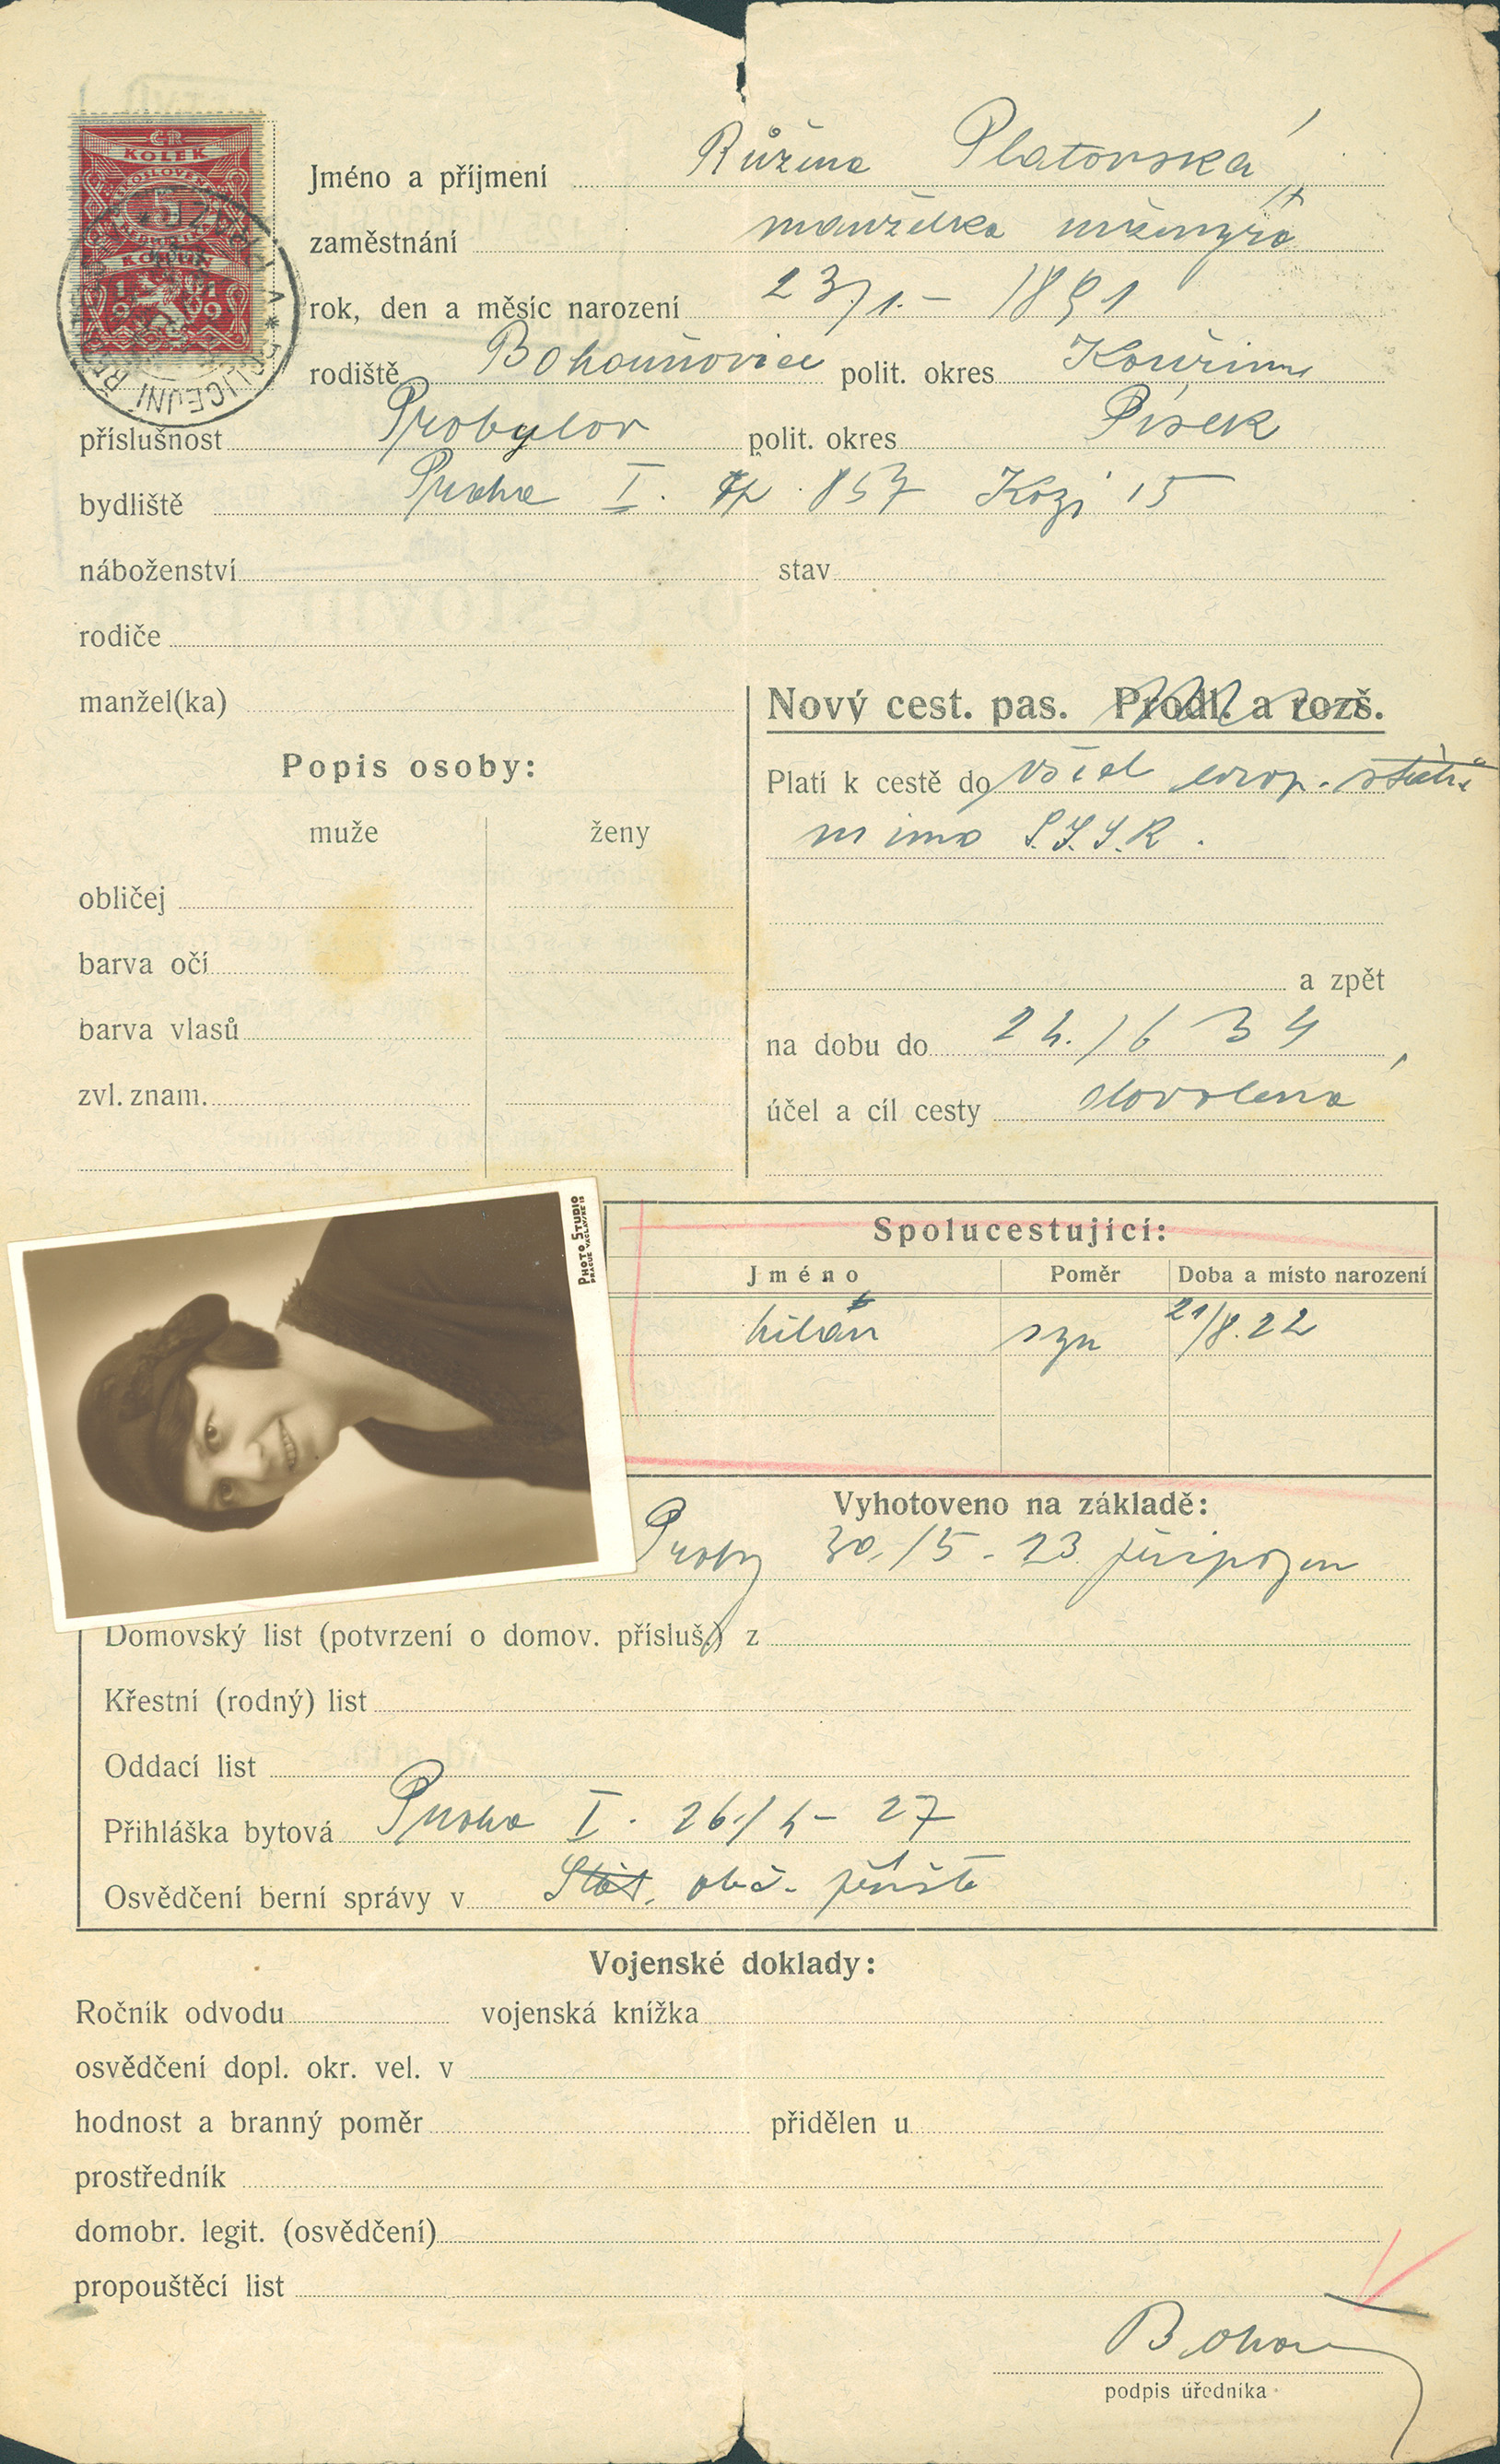 ČR
KOLEK
5
KORUN
1919
Jméno a příjmení Růžena Platovská
zaměstnání manželka inženýra
rok, den a měsíc narození 23/1. – 1891
rodiště Bohouňovice polit. okres Kouřim
příslušnost Probulov polit. okres Písek
bydliště Praha I. čp. 857 Kozí 15
náboženství stav
rodiče
manžel(ka)
Nový cest. pas. Prodl. a rozš.
Popis osoby:
Platí k cestě do všech evrop. států
mimo S.S.S.R.
muže ženy
obličej
barva očí
a zpět
barva vlasů
na dobu do 24./6 34
zvl. znam.
účel a cíl cesty dovolená
PHOTO STUDIO
Spolucestující:
Jméno Poměr Doba a místo narození
Milan syn 21/8.22
Vyhotoveno na základě:
30./5 - 23 připojen
Domovský list (potvrzení o domov. přísluš.) z
Křestní (rodný) list
Oddací list
Přihláška bytová Praha I. 26./4 – 27
Osvědčení berní správy v Stát. obč. zjiště
Vojenské doklady:
Ročník odvodu vojenská knížka
osvědčení dopl. okr. vel. v
hodnost a branný poměr přidělen u
prostředník
domobr. legit. (osvědčení)
propouštěcí list
podpis úředníka